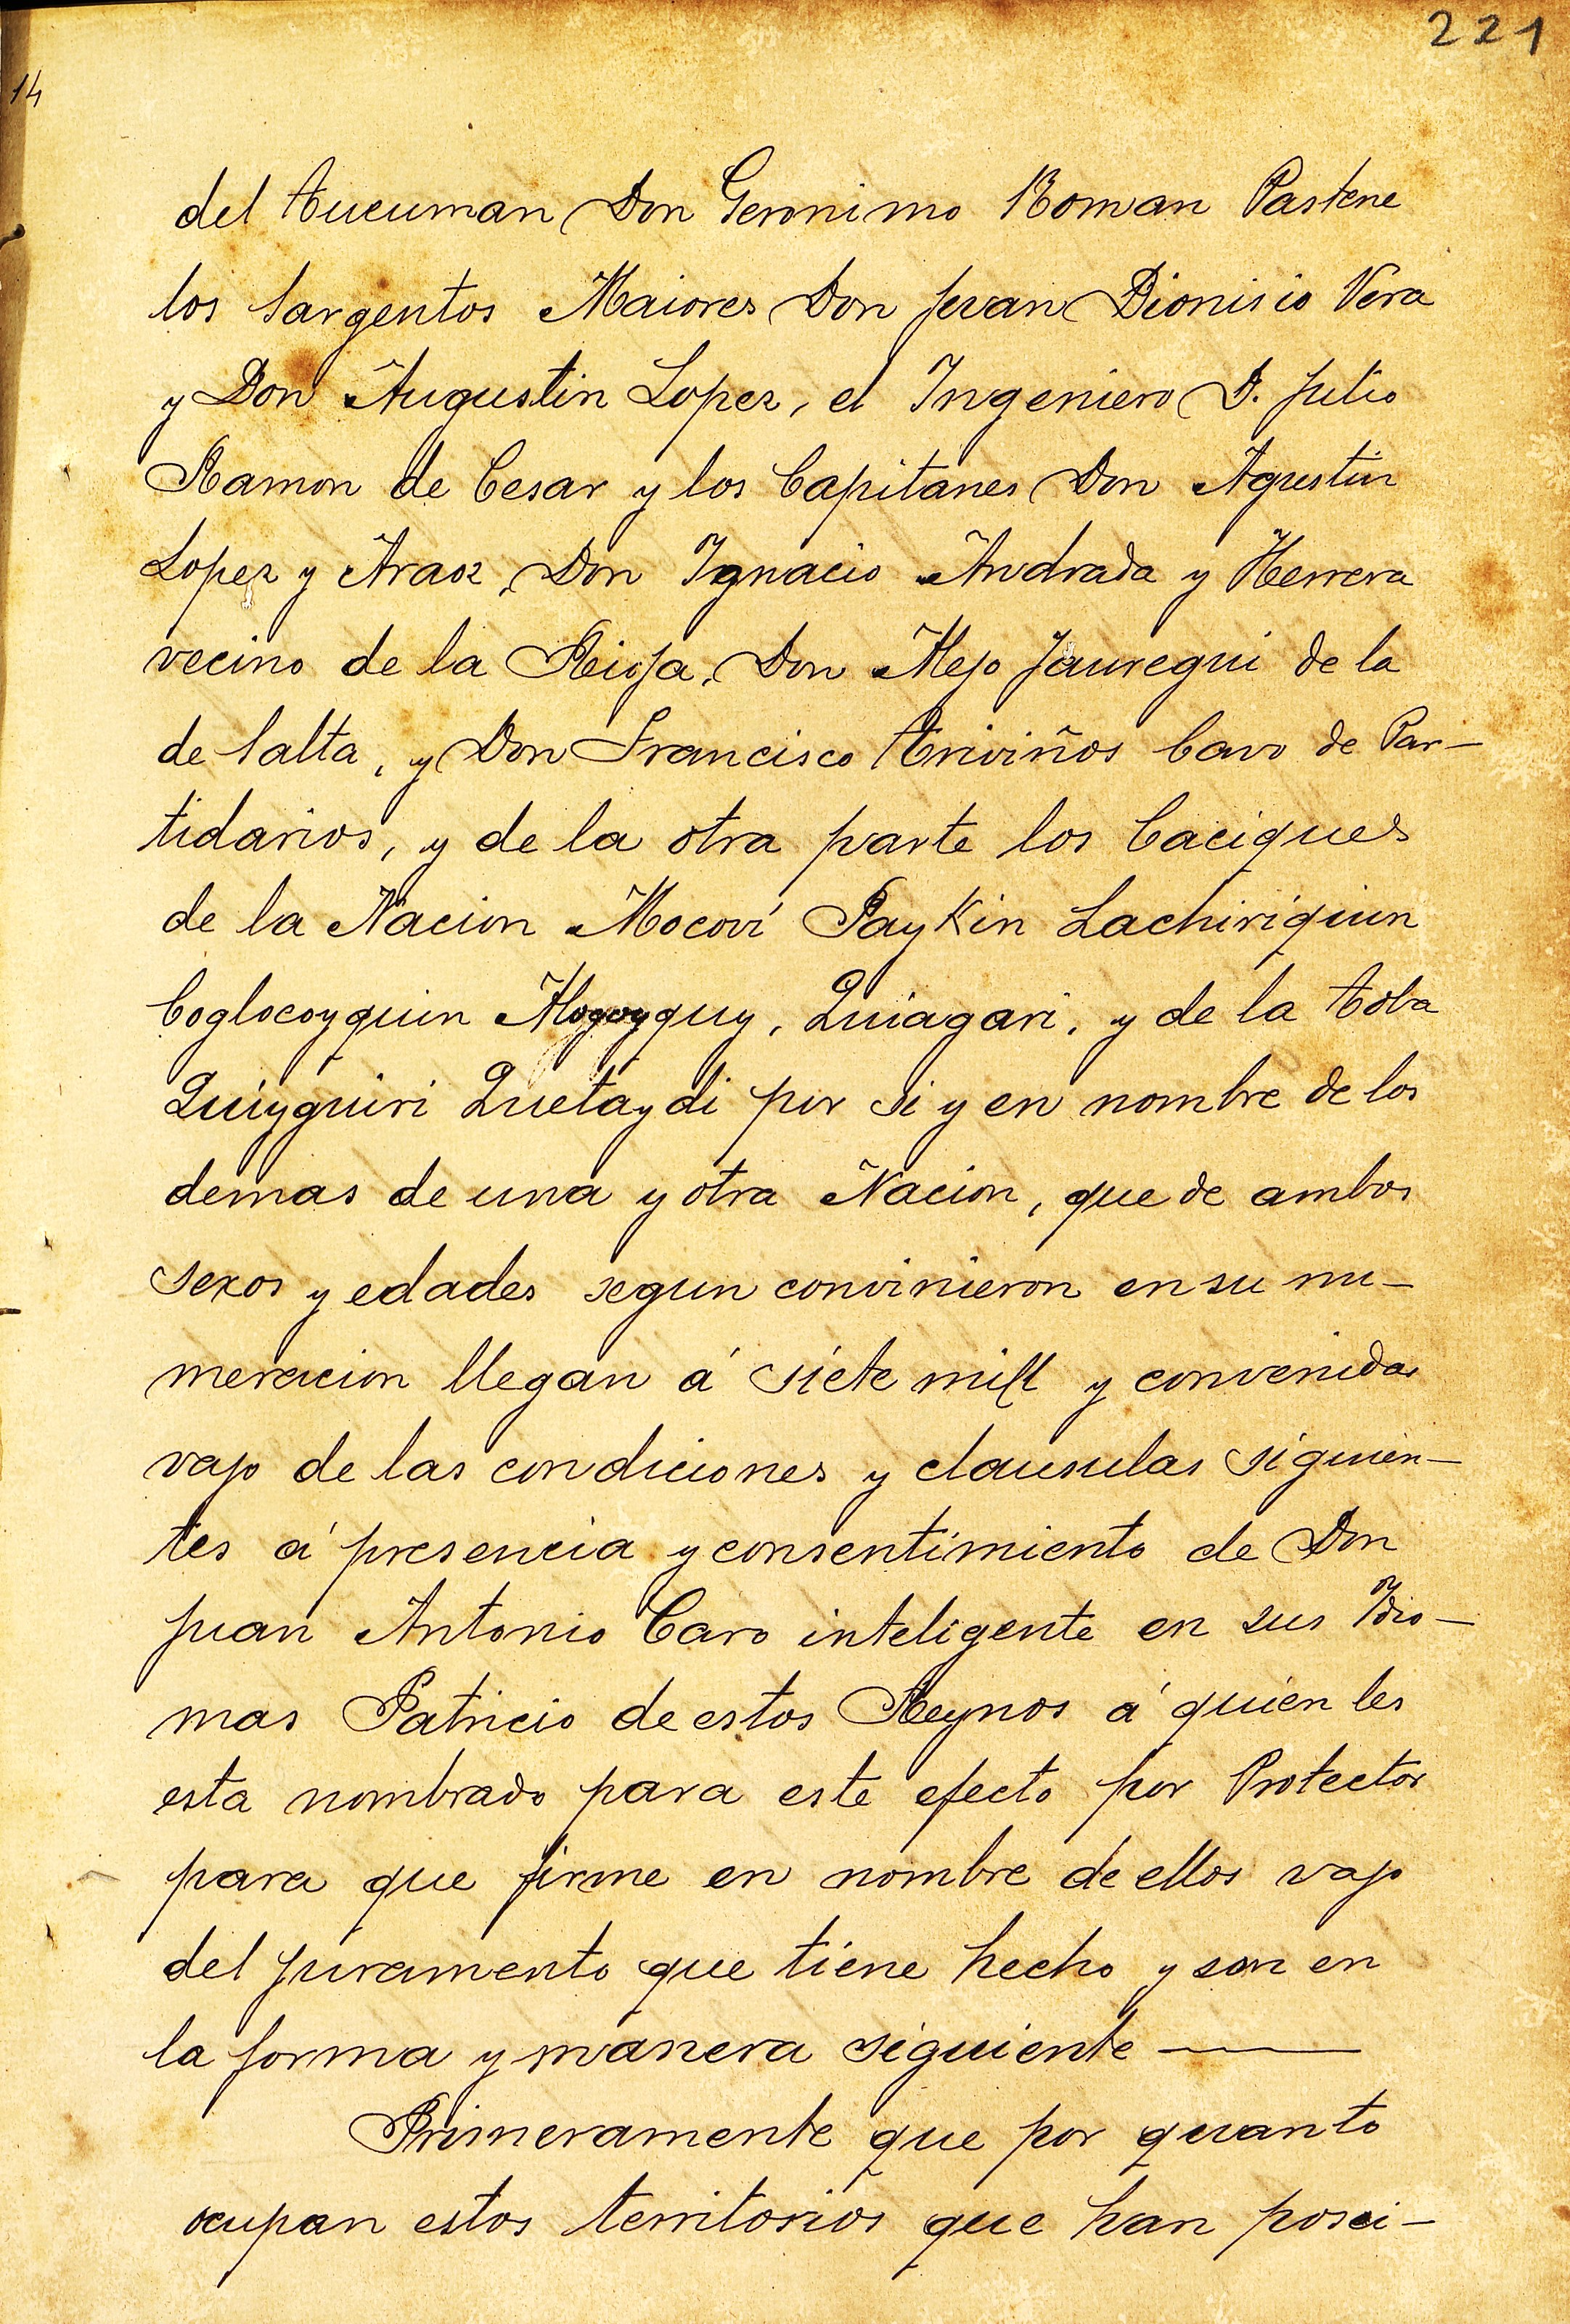 221
14
del Tucuman Don Geronimo Roman Pastene
los Sargentos Maiores Don Juan Dionisio Vera
y Don Augustin Lopez, el Ingeniero D. Julio
Ramon de Cesar y los Capitanes Don Agustin
Lopez y Araoz, Don Ignacio Andrada y Herrera
vecino de la Rioja, Don Alejo Jauregui de la
de Salta, y Don Francisco Triviños Cavo de Par-
tidarios, y de la otra parte los Caciques
de la Nacion Mocoví PayKin Lachiriquin
Coglocoyquin Alogoyquy, Quiagari, y de la Toba
Quiyquiri Quetaydi por si y en nombre de los
demas de una y otra Nacion, que de ambos
sexos y edades segun convinieron en su nu-
meracion llegan á siete mill y convenidas
vajo de las condiciones y clausulas siguien-
tes á presencia y consentimiento de Don
Juan Antonio Caro inteligente en sus Idio-
mas Patricio de estos Reynos á quien les
esta nombrado para este efecto por Protector
para que firme en nombre de ellos vajo
del juramento que tiene hecho y son en
la forma y manera siguiente ——
Primeramente que por quanto
ocupan estos territorios que han posei-